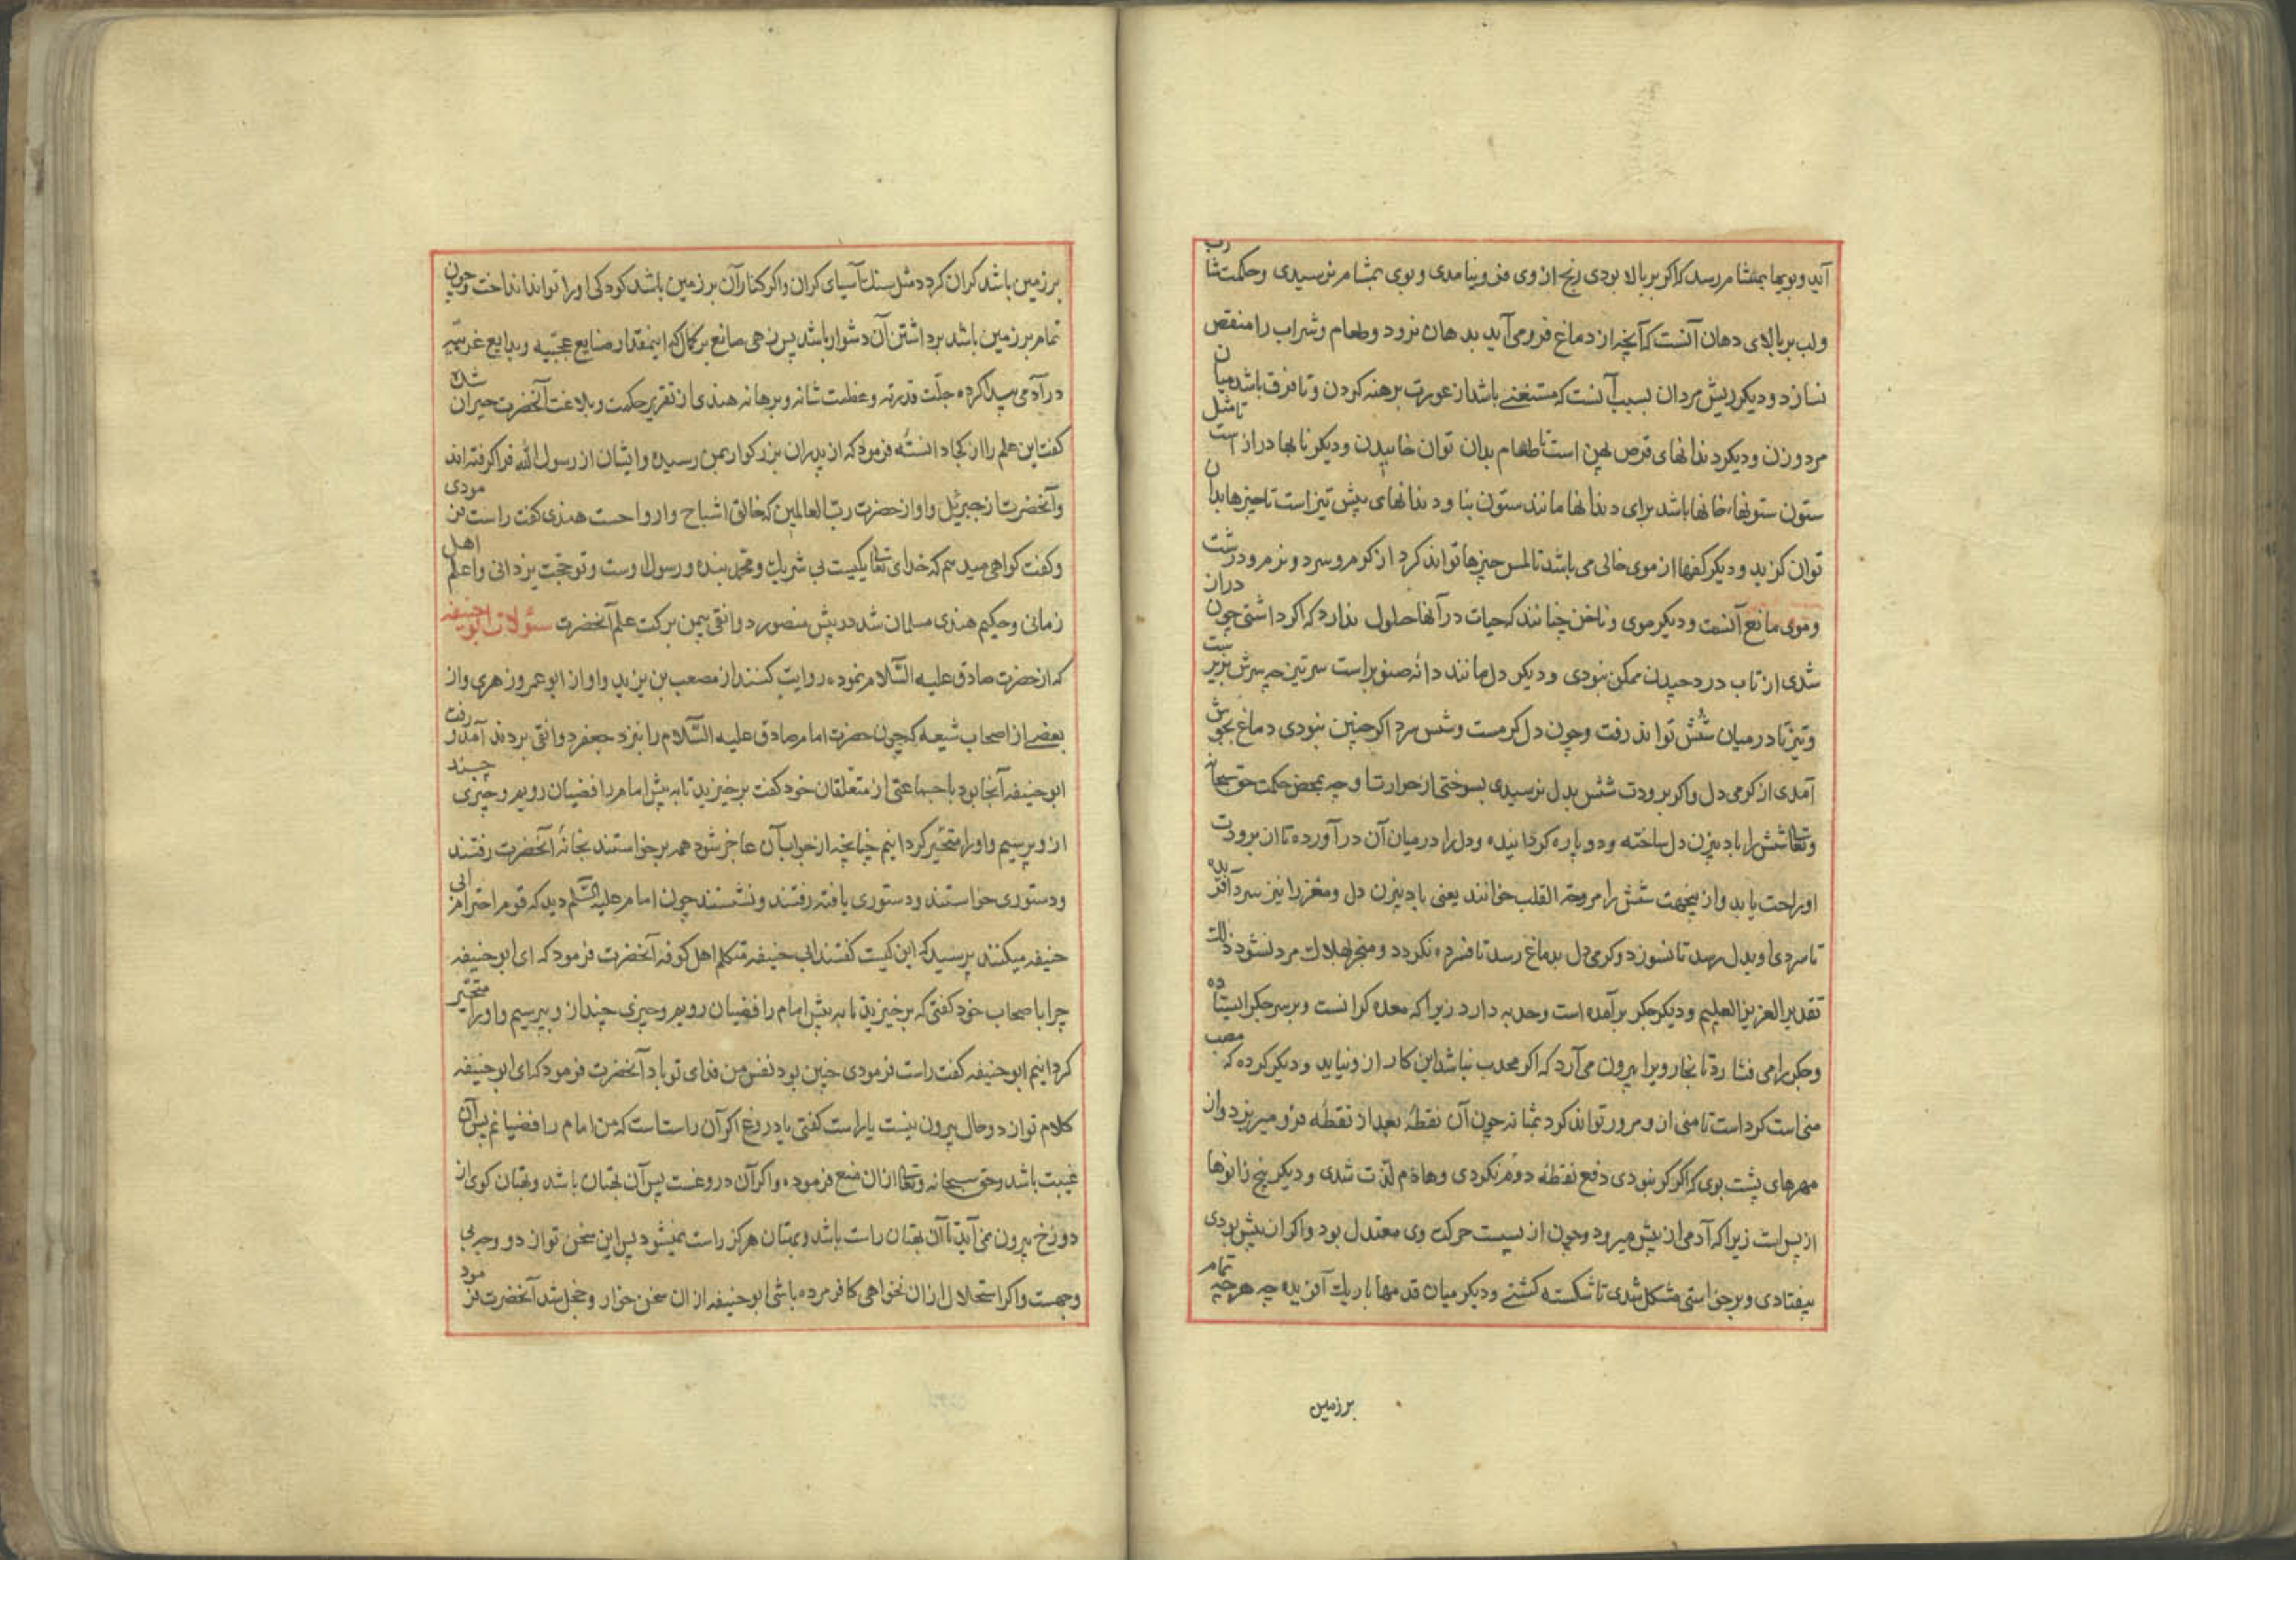 آید و بویها بمشام رسد که اکر بر بالا بودی رنج از وی فرو نیامدی و بوی بمشام نرسیدی و حکمت شارب
ولب بر بالای دهان آنست که آنچه از دماغ فرو می آید بدهان نرود و طعام و شراب را منقص
نسازد و دیکر ریش مردان بسبب آنست که مستغنی باشد از عورت برهنه کردن و تا فرق باشد میان
مرد و زن و دیکر دندانهای قرص پهن است تا طعام بدان توان خائیدن و دیکر نابها دراز است تا مثل
ستون ستونها، خانها باشد برای دندانها مانند ستون بنا و دندانهای پیش تیز است تا چیزها بدان
توان کزید و دیکر کفها از موی خالی می باشد تا لمس چیزها تواند کرد از کرم و سرد و نرم و درشت
و موی مانع آنست و دیکر موی و ناخن چنانند که حیات در آنها حلول ندارد که اکر داشتی چون دراز
شدی از تاب درد چیدن ممکن نبودی و دیکر دل مانند دانه صنوبر است سر تیز چه سرش بزیرست
و تیز تا در میان شش تواند رفت و چون دل کرمست و شش سرد اکر چنین نبودی دماغ بجوش
آمدی از کرمی دل و اکر برودت شش بدل نرسیدی بسوختی از حرارت و چه بمحض حکمت حق سبحانه
وتعالی شش را بادبیزن دل ساخته و دو پاره کردانیده و دل را در میان آن در آورده تا از برودت
او راحت یابد و از ینجهت شش را مروحة القلب خوانند یعنی بادبیزن دل و مغز را نیز سرد آفریده
تا سردی او بدل رسد تا نسوزد و کرمی دل بدماغ رسد تا فسرده نکردد و منجر بهلاک مرد نشود ذلک
تقدیر العزیز العلیم و دیکر جکر برآمده است و حدبه دارد زیرا که معده کرانست و بر سر جکر ایستاده
و جکر را می فشارد تا بخار ویرا بیرون می آرد که اکر محدب نباشد این کار ازو نیاید و دیکر کرده که مصب
منی است کرد است تا منی ازو مرور تواند کرد بمثانه چون آن نقطه بعد از نقطه فرو میریزد و از
مهرهای پشت بوی که اکر کرد نبودی دفع نقطه دوم نکردی و هادم لذت شدی و دیکر پیچ زانوها
از پس است زیرا که آدمی از پیش میرود و چون از پسست حرکت وی معتدل بود و اکر از پیش بودی
بیفتادی و برخواستی مشکل شدی تا شکسته کشتی و دیکر میان قدمها باریک آفریده چه هر چه تمام
برزمین
بر زمین باشد کران کردد مثل سنک آسیای کران و اکر کنار آن بر زمین باشد کودکی او را تواند انداخت و چون
تمام بر زمین باشد برداشتن آن دشوار باشد پس زهی صانع بر کمال که اینمقدار صنایع عجیبه و بدایع غریبه
در آدمی پیدا کرده جلت قدرته و عظمت شانه و برهانه هندی از تقریر حکمت و بلاغت آنحضرت حیران شده
کفت این علم را از کجا دانسته فرمود که از پدران بزرکوار بمن رسیده و ایشان از رسول الله فرا کرفته اند
و آنحضرت از جبرئیل و او از حضرت رب العالمین که خالق اشباح و ارواحست هندی کفت راست فرمودی
و کفت کواهی میدهم که خدای تعالی یکیست بی شریک و محمد بنده و رسول اوست و تو حجت یزدانی و اعلم اهل
زمانی و حکیم هندی مسلمان شد در پیش منصور دوانقی بیمن برکت علم آنحضرت سؤلات ابو حنیفه
که از حضرت صادق علیه السلام نموده روایت کنند از مصعب بن یزید و او از ابو عمرو زهری و از
بعضی از اصحاب شیعه که چون حضرت امام صادق علیه السلام را بنزد جعفر دوانقی بردند آمد و رفت
ابو حنیفه آنجا بود با جماعتی از متعلقان خود کفت برخیزید تا به پیش امام رافضیان رویم و چیزی چند
ازو پرسیم و او را متحیر کردانیم چنانچه از جواب آن عاجز شود همه برخواستند بخانه آنحضرت رفتند
و دستوری خواستند و دستوری یافته رفتند و نشستند چون امام علیه السلم دید که قوم احترام ابی
حنیفه میکنند پرسید که این کیست کفتند ابی حنیفه متکلم اهل کوفه آنحضرت فرمود که ای ابو حنیفه
چرا با صحاب خود کفتی که برخیزید تا به پیش امام رافضیان رویم و چیزی چند ازو بپرسیم و او را متحیر
کردانیم ابو حنیفه کفت راست فرمودی چنین بود نفس من فدای تو باد آنحضرت فرمود که ای ابو حنیفه
کلام تو از دو حال بیرون نیست یا راست کفتی یا دروغ اکر آن راست است که من امام رافضیانم پس آن
غیبت باشد و حق سبحانه وتعالی از ان منع فرموده و اکر آن دروغست پس آن بهتان باشد و بهتان کوی از
دوزخ بیرون نمی آید تا آن بهتان راست باشد و بهتان هرکز راست نمیشود پس این سخن تو از دو وجه بی
وجهست و اکر استحلال از ان نخواهی کافر مرده باشی ابو حنیفه از ان سخن خوار و خجل شد آنحضرت فرمود